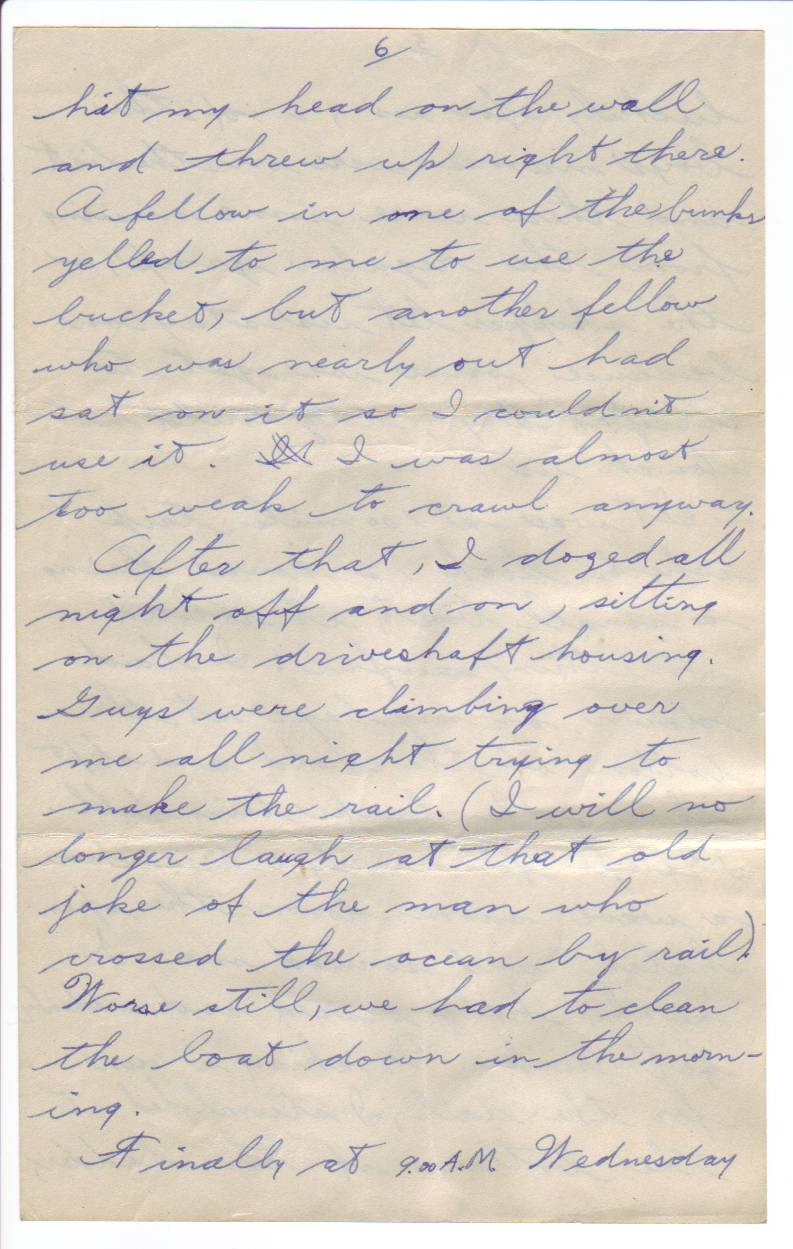 6
hit my head on the wall
and threw up right there.
A fellow in one of the bunks
yelled to me to use the
bucket, but another fellow
who was nearly out had
sat on it so I couldn't
use it. I was almost
too weak to crawl anyway.
After that, I dozed all
night off and on, sitting
on the driveshaft housing.
Guys were climbing over
me all night trying to
make the rail. (I will no
longer laugh at that old
joke of the man who
crossed the ocean by rail).
Worse still, we had to clean
the boat down in the morn-
ing.
Finally at 9.00 A.M. Wednesday